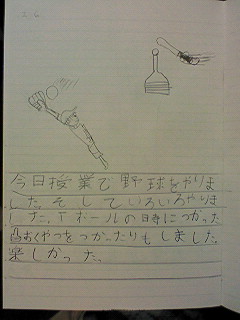 今日授業で野球をやりま
した。そしていろいろやりま
した。Tボールの時につかった
凸おくやつをつかったりもしました。
楽しかった。